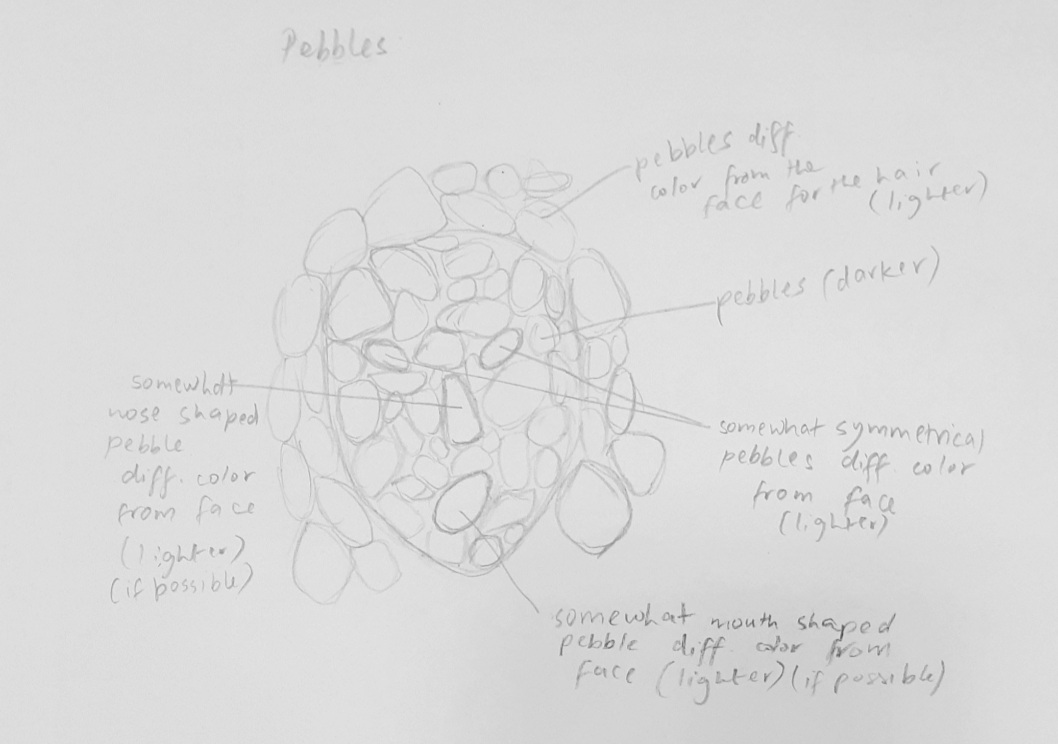 Pebbles
pebbles diff.
color from the
face for the hair
(lighter)
pebbles (darker)
somewhat
nose shaped
pebble
diff. color
from face
(lighter)
(if possible)
somewhat symmetrical
pebbles diff. color
from face
(lighter)
somewhat mouth shaped
pebble diff. color from
face (lighter) (if possible)